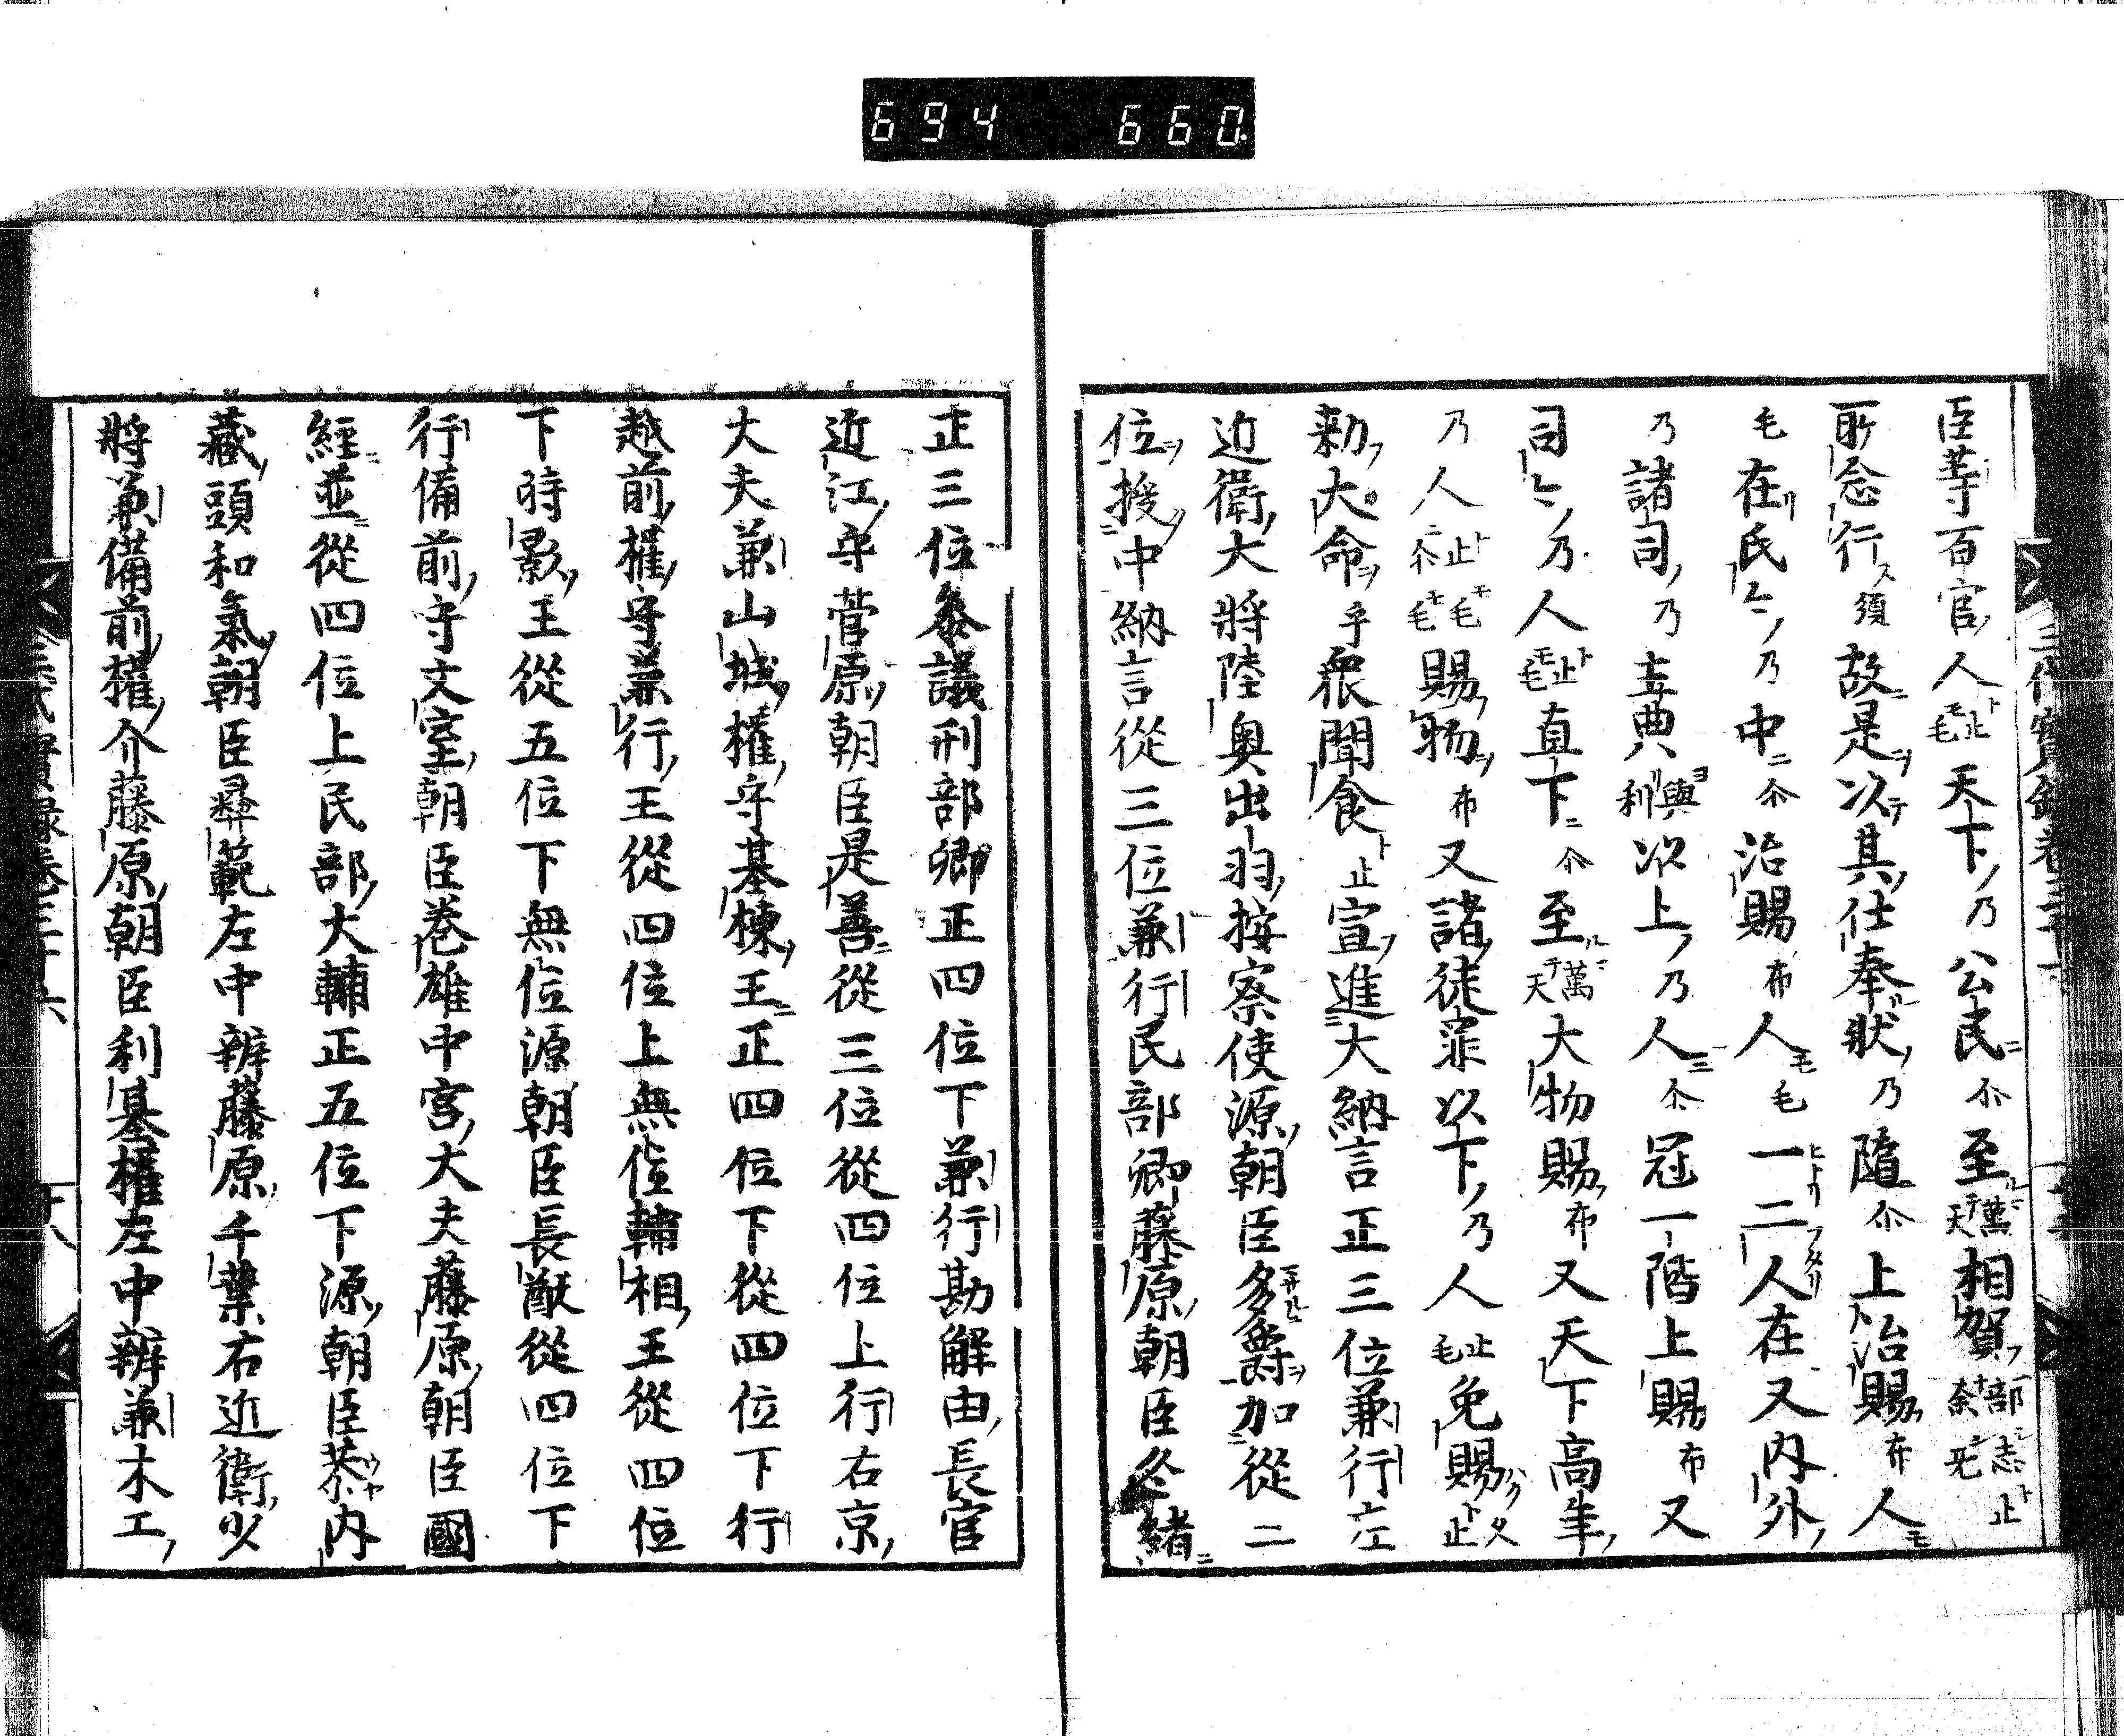 694 660
臣等百官人止毛天下乃公民尒至萬天相賀部志止奈无
所念行須故是以其仕奉狀乃隨尒上治賜布人
毛在氏々乃中尒治賜布人毛一二人在又内外
乃諸司乃主典與利以上乃人尒冠一階上賜布又
司々乃人止毛直下尒至萬天大物賜布又天下高年
乃人止毛尒毛賜物布又諸徒罪以下乃人止毛免賜止
勅大命乎衆聞食止宣進大納言正三位兼行左
近衛大將陸奧出羽按察使源朝臣多爵加從二
位授中納言從三位兼行民部卿藤原朝臣冬緒
正三位參議刑部卿正四位下兼行勘解由長官
近江守菅原朝臣是善從三位從四位上行右京
大夫兼山城權守基棟王正四位下從四位下行
越前權守兼行王從四位上無位輔相王從四位
下時影王從五位下無位源朝臣長猷從四位下
行備前守文室朝臣卷雄中宮大夫藤原朝臣國
經並從四位上民部大輔正五位下源朝臣恭内
藏頭和氣朝臣彝範左中辨藤原千葉右近衛少
將兼備前權介藤原朝臣利基權左中辨兼木工